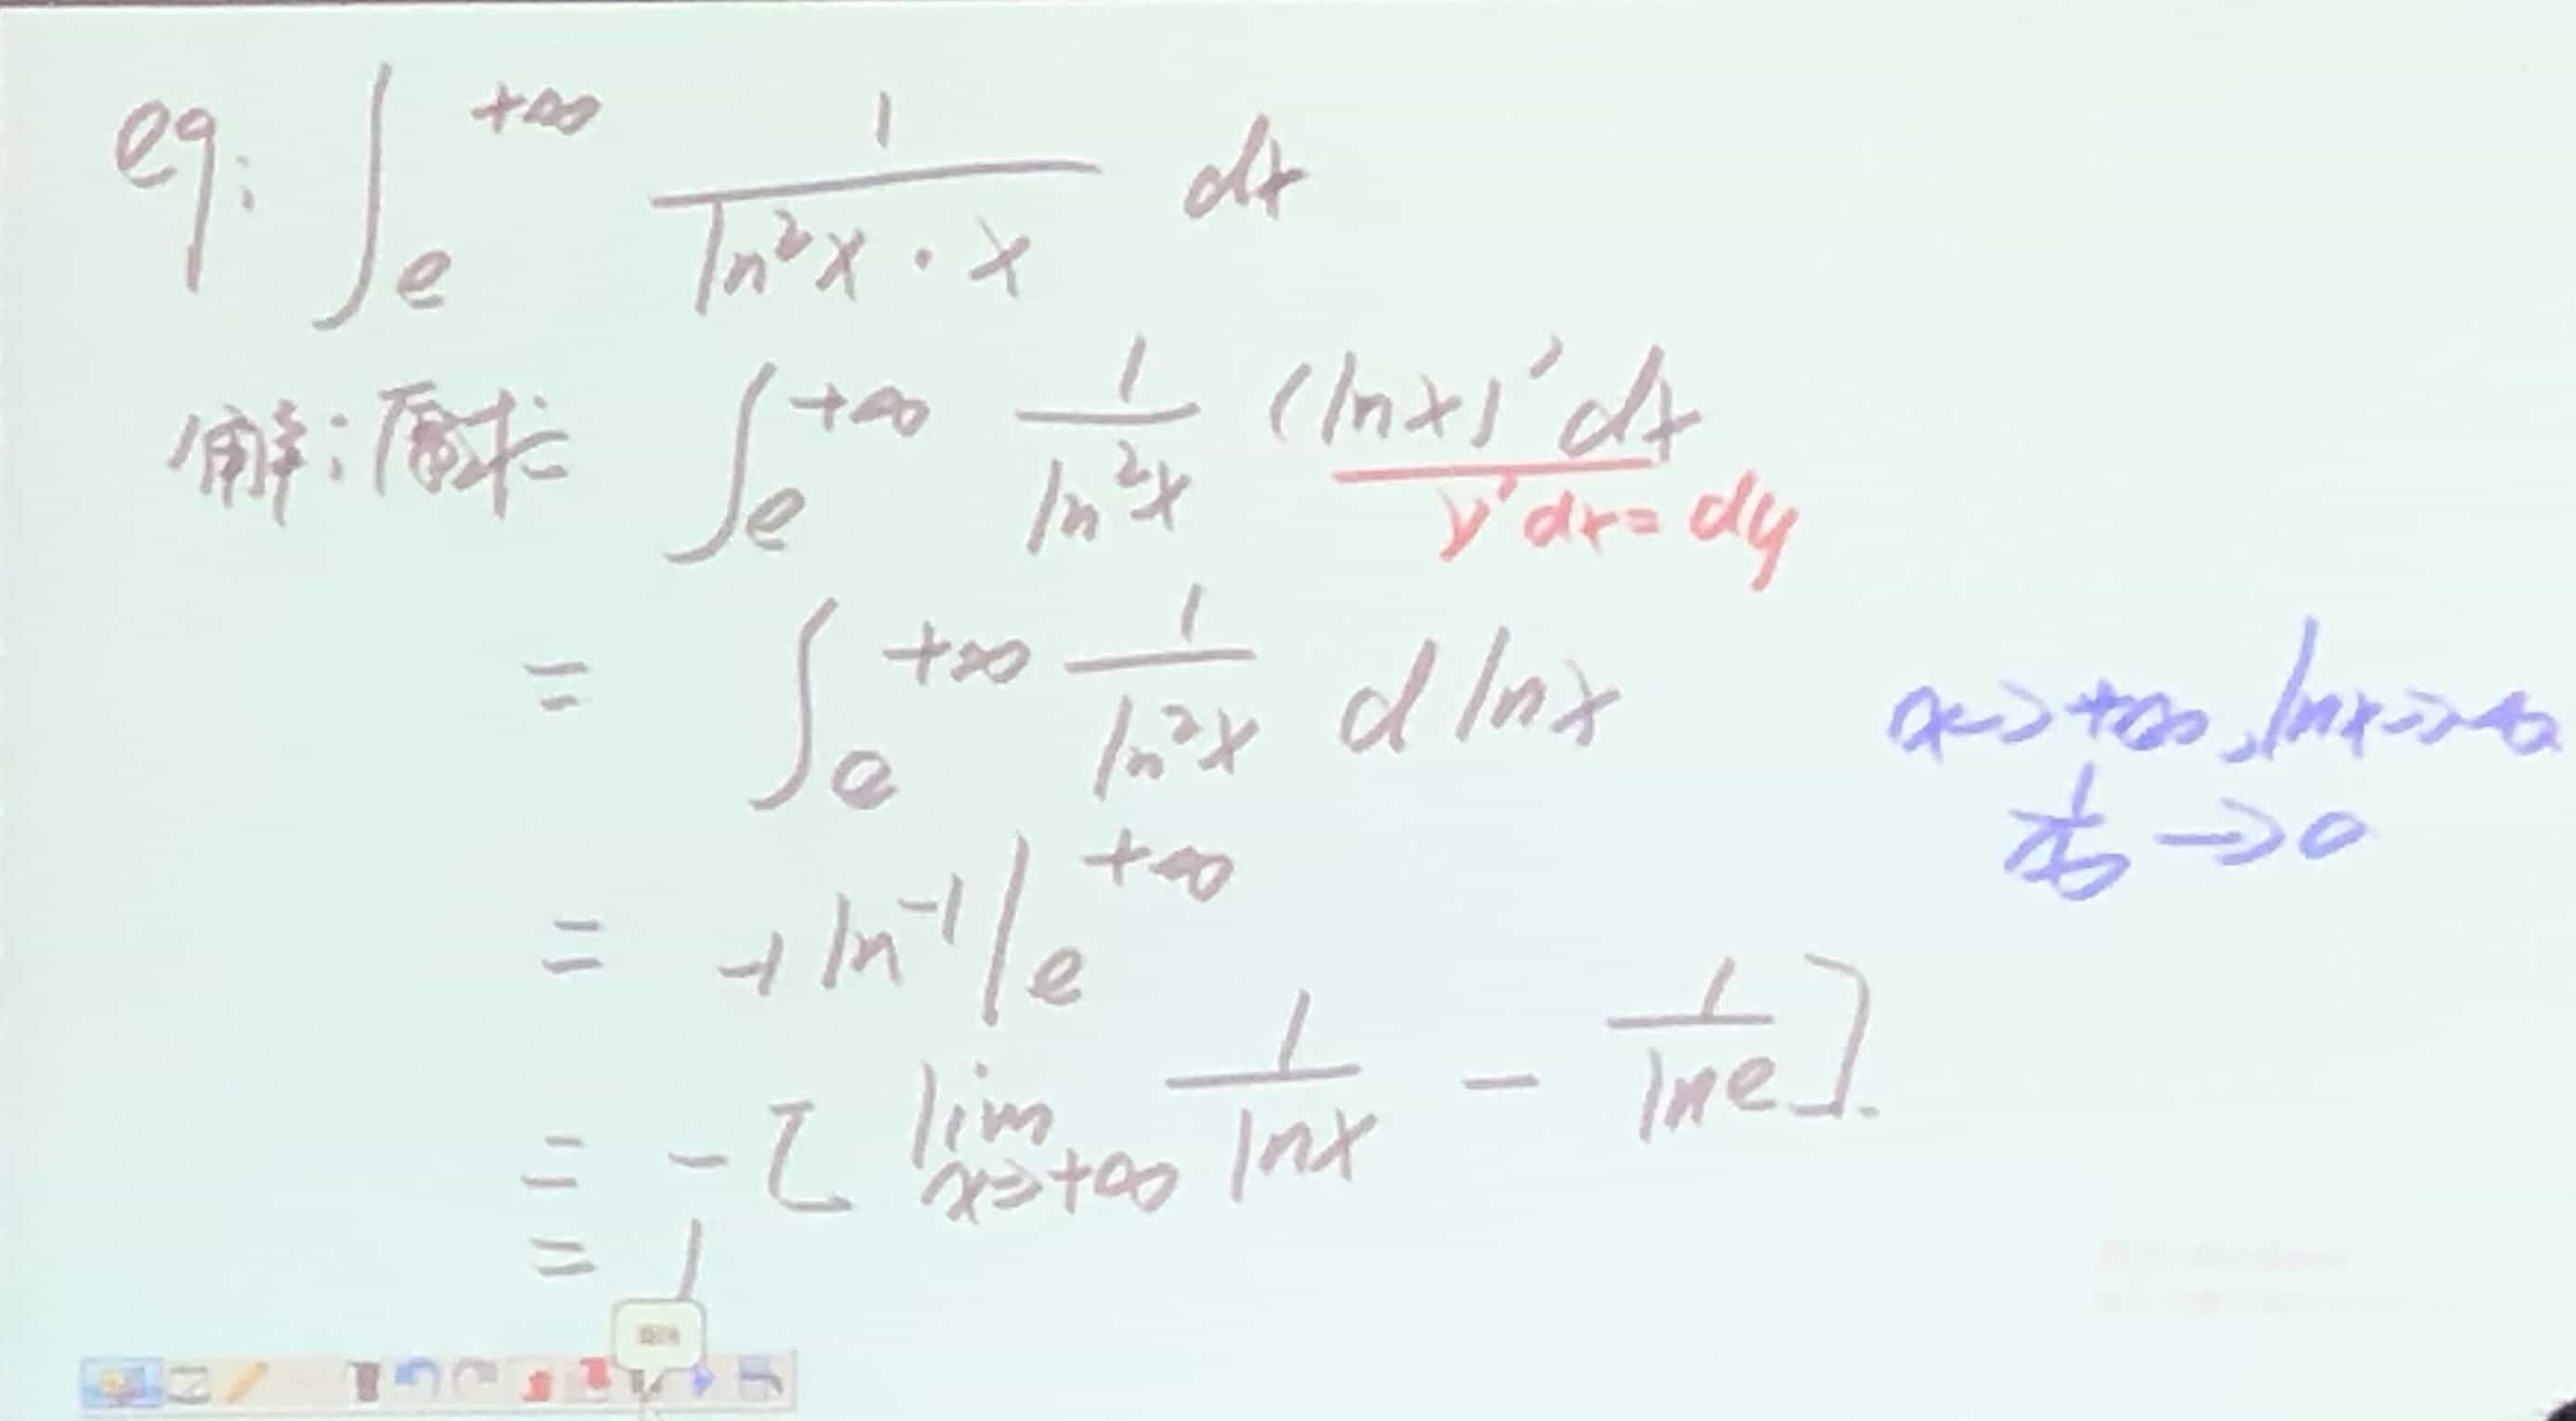 eg: ∫_e^{+∞} 1/(ln²x · x) dx
解:原式= ∫_e^{+∞} 1/ln²x (lnx)'dx
y'dx=dy
= ∫_e^{+∞} 1/ln²x d lnx
x→+∞, lnx→+∞
1/∞ →0
= -1 ln⁻¹|_e^{+∞}
= -[ lim_{x→+∞} 1/lnx - 1/lne ].
= 1